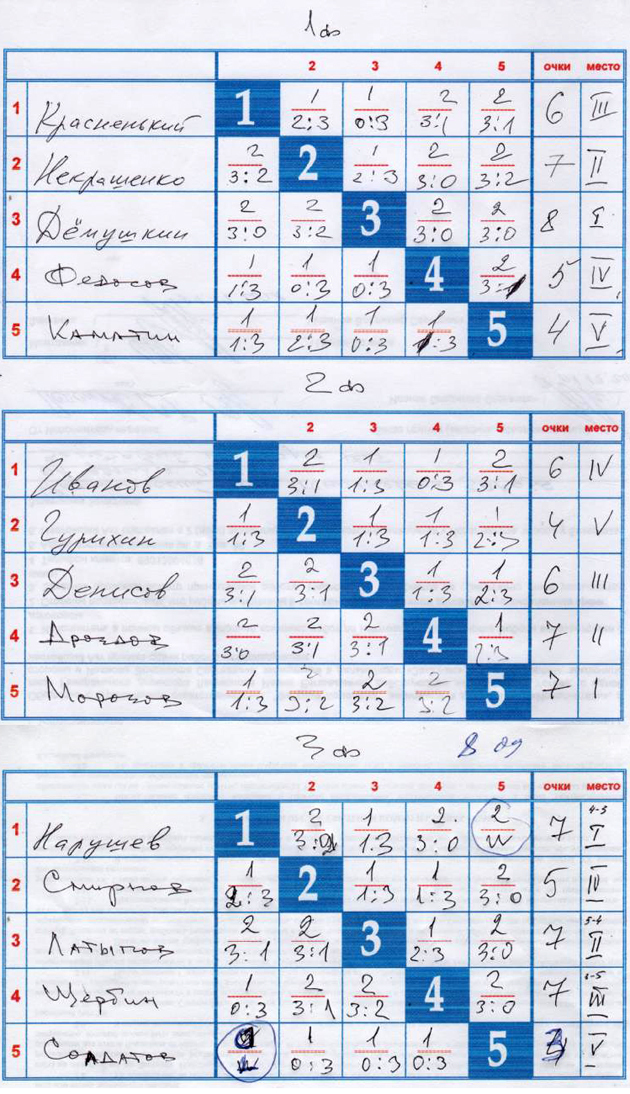 1ф
2 3 4 5 очки место
1 Красненький 1 1 2:3 1 0:3 2 3:1 2 3:1 6 III
2 Некрашенко 2 3:2 2 1 2:3 2 3:0 2 3:2 7 II
3 Дёмушкин 2 3:0 2 3:2 3 2 3:0 2 3:0 8 I
4 Федосов 1 1:3 1 0:3 1 0:3 4 2 3:1 5 IV
5 Каматин 1 1:3 1 2:3 1 0:3 1 1:3 5 4 V
2ф
2 3 4 5 очки место
1 Иванов 1 2 3:1 1 1:3 1 0:3 2 3:1 6 IV
2 Гурихин 1 1:3 2 1 1:3 1 1:3 1 2:3 4 V
3 Денисов 2 3:1 2 3:1 3 1 1:3 1 2:3 6 III
4 Дроздов 2 3:0 2 3:1 2 3:1 4 1 2:3 7 II
5 Морозов 1 1:3 2 3:2 2 3:2 2 3:2 5 7 I
3ф
2 3 4 5 очки место
1 Нарушев 1 2 3:2 1 1:3 2 3:0 2 W 7 4-3 I
2 Смирнов 1 2:3 2 1 1:3 1 1:3 2 3:0 5 IV
3 Латыпов 2 3:1 2 3:1 3 1 2:3 2 3:0 7 5-4 II
4 Щербин 1 0:3 2 3:1 2 3:2 4 2 3:0 7 III
5 Солдатов 0 L 1 0:3 1 0:3 1 0:3 5 3 V